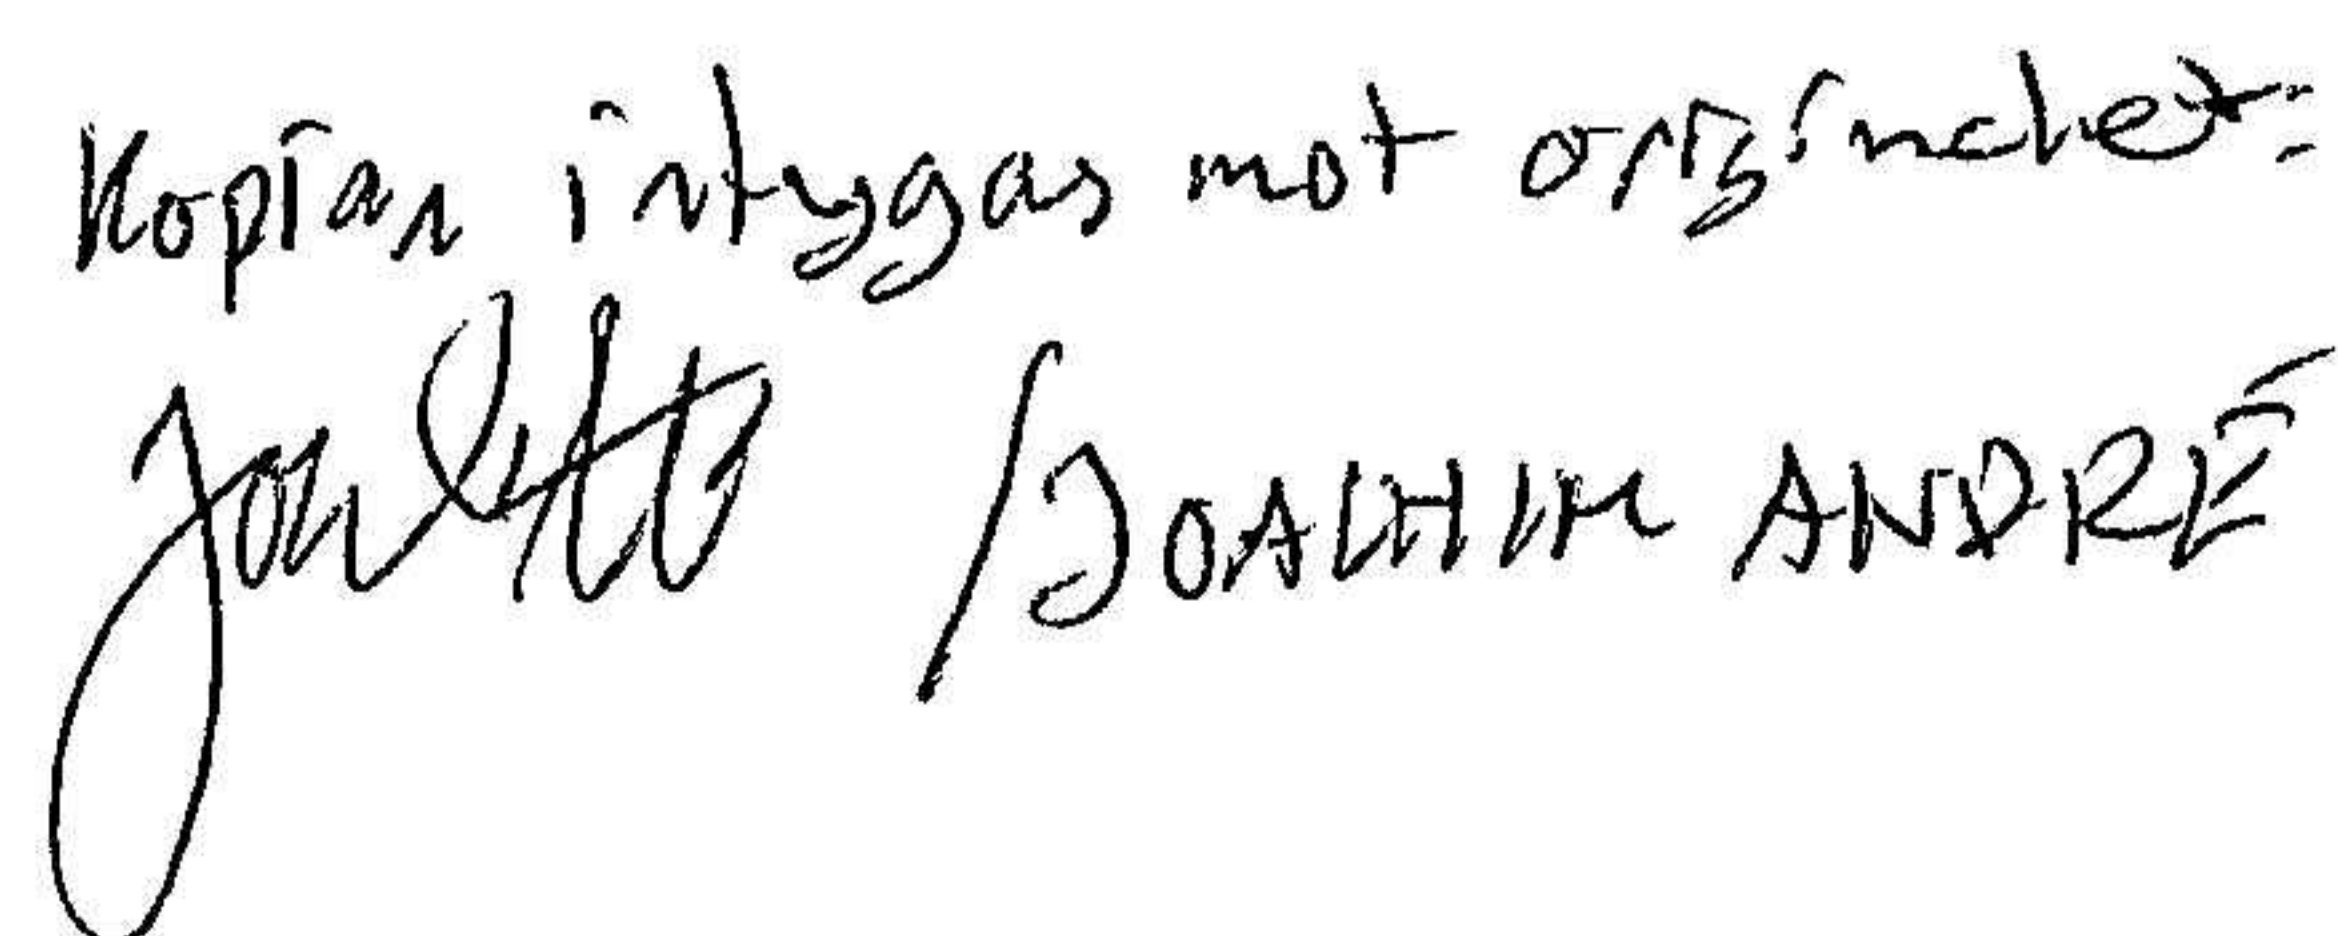 Kopian intygas mot originalet:
/JOACHIM ANDRÉ